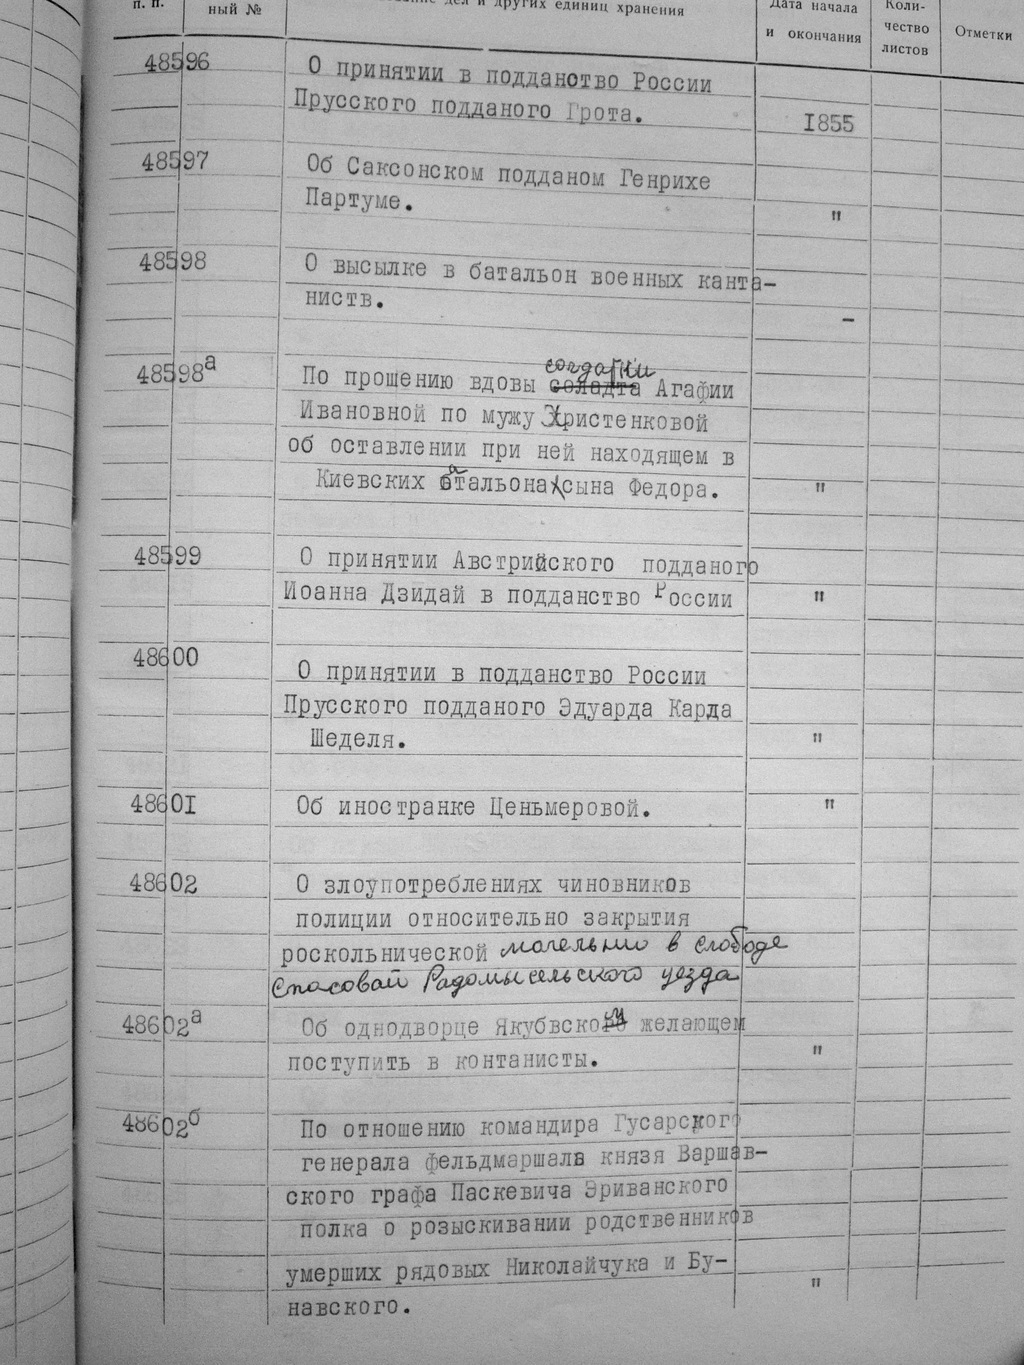 п. п.
ный №
дел и других единиц хранения
Дата начала
и окончания
Коли-
чество
листов
Отметки
48596
О принятии в подданство России
Прусского подданого Грота.
1855
48597
Об Саксонском подданом Генрихе
Партуме.
"
48598
О высылке в батальон военных канта-
ниств.
-
48598а
солдатки
По прошению вдовы соладта Агафии
Ивановной по мужу Христенковой
об оставлении при ней находящем в
Киевских батальона сына Федора.
"
48599
О принятии Австрийского подданого
Иоанна Дзидай в подданство России
"
48600
О принятии в подданство России
Прусского подданого Эдуарда Карда
Шеделя.
"
48601
Об иностранке Ценьмеровой.
"
48602
О злоупотреблениях чиновников
полиции относительно закрытия
роскольнической молельни в слободе
Спасовой Радомысельского уезда
48602а
Об однодворце Якубвском желающем
поступить в контанисты.
"
48602б
По отношению командира Гусарского
генерала фельдмаршала князя Варшав-
ского графа Паскевича Эриванского
полка о розыскивании родственников
умерших рядовых Николайчука и Бу-
навского.
"